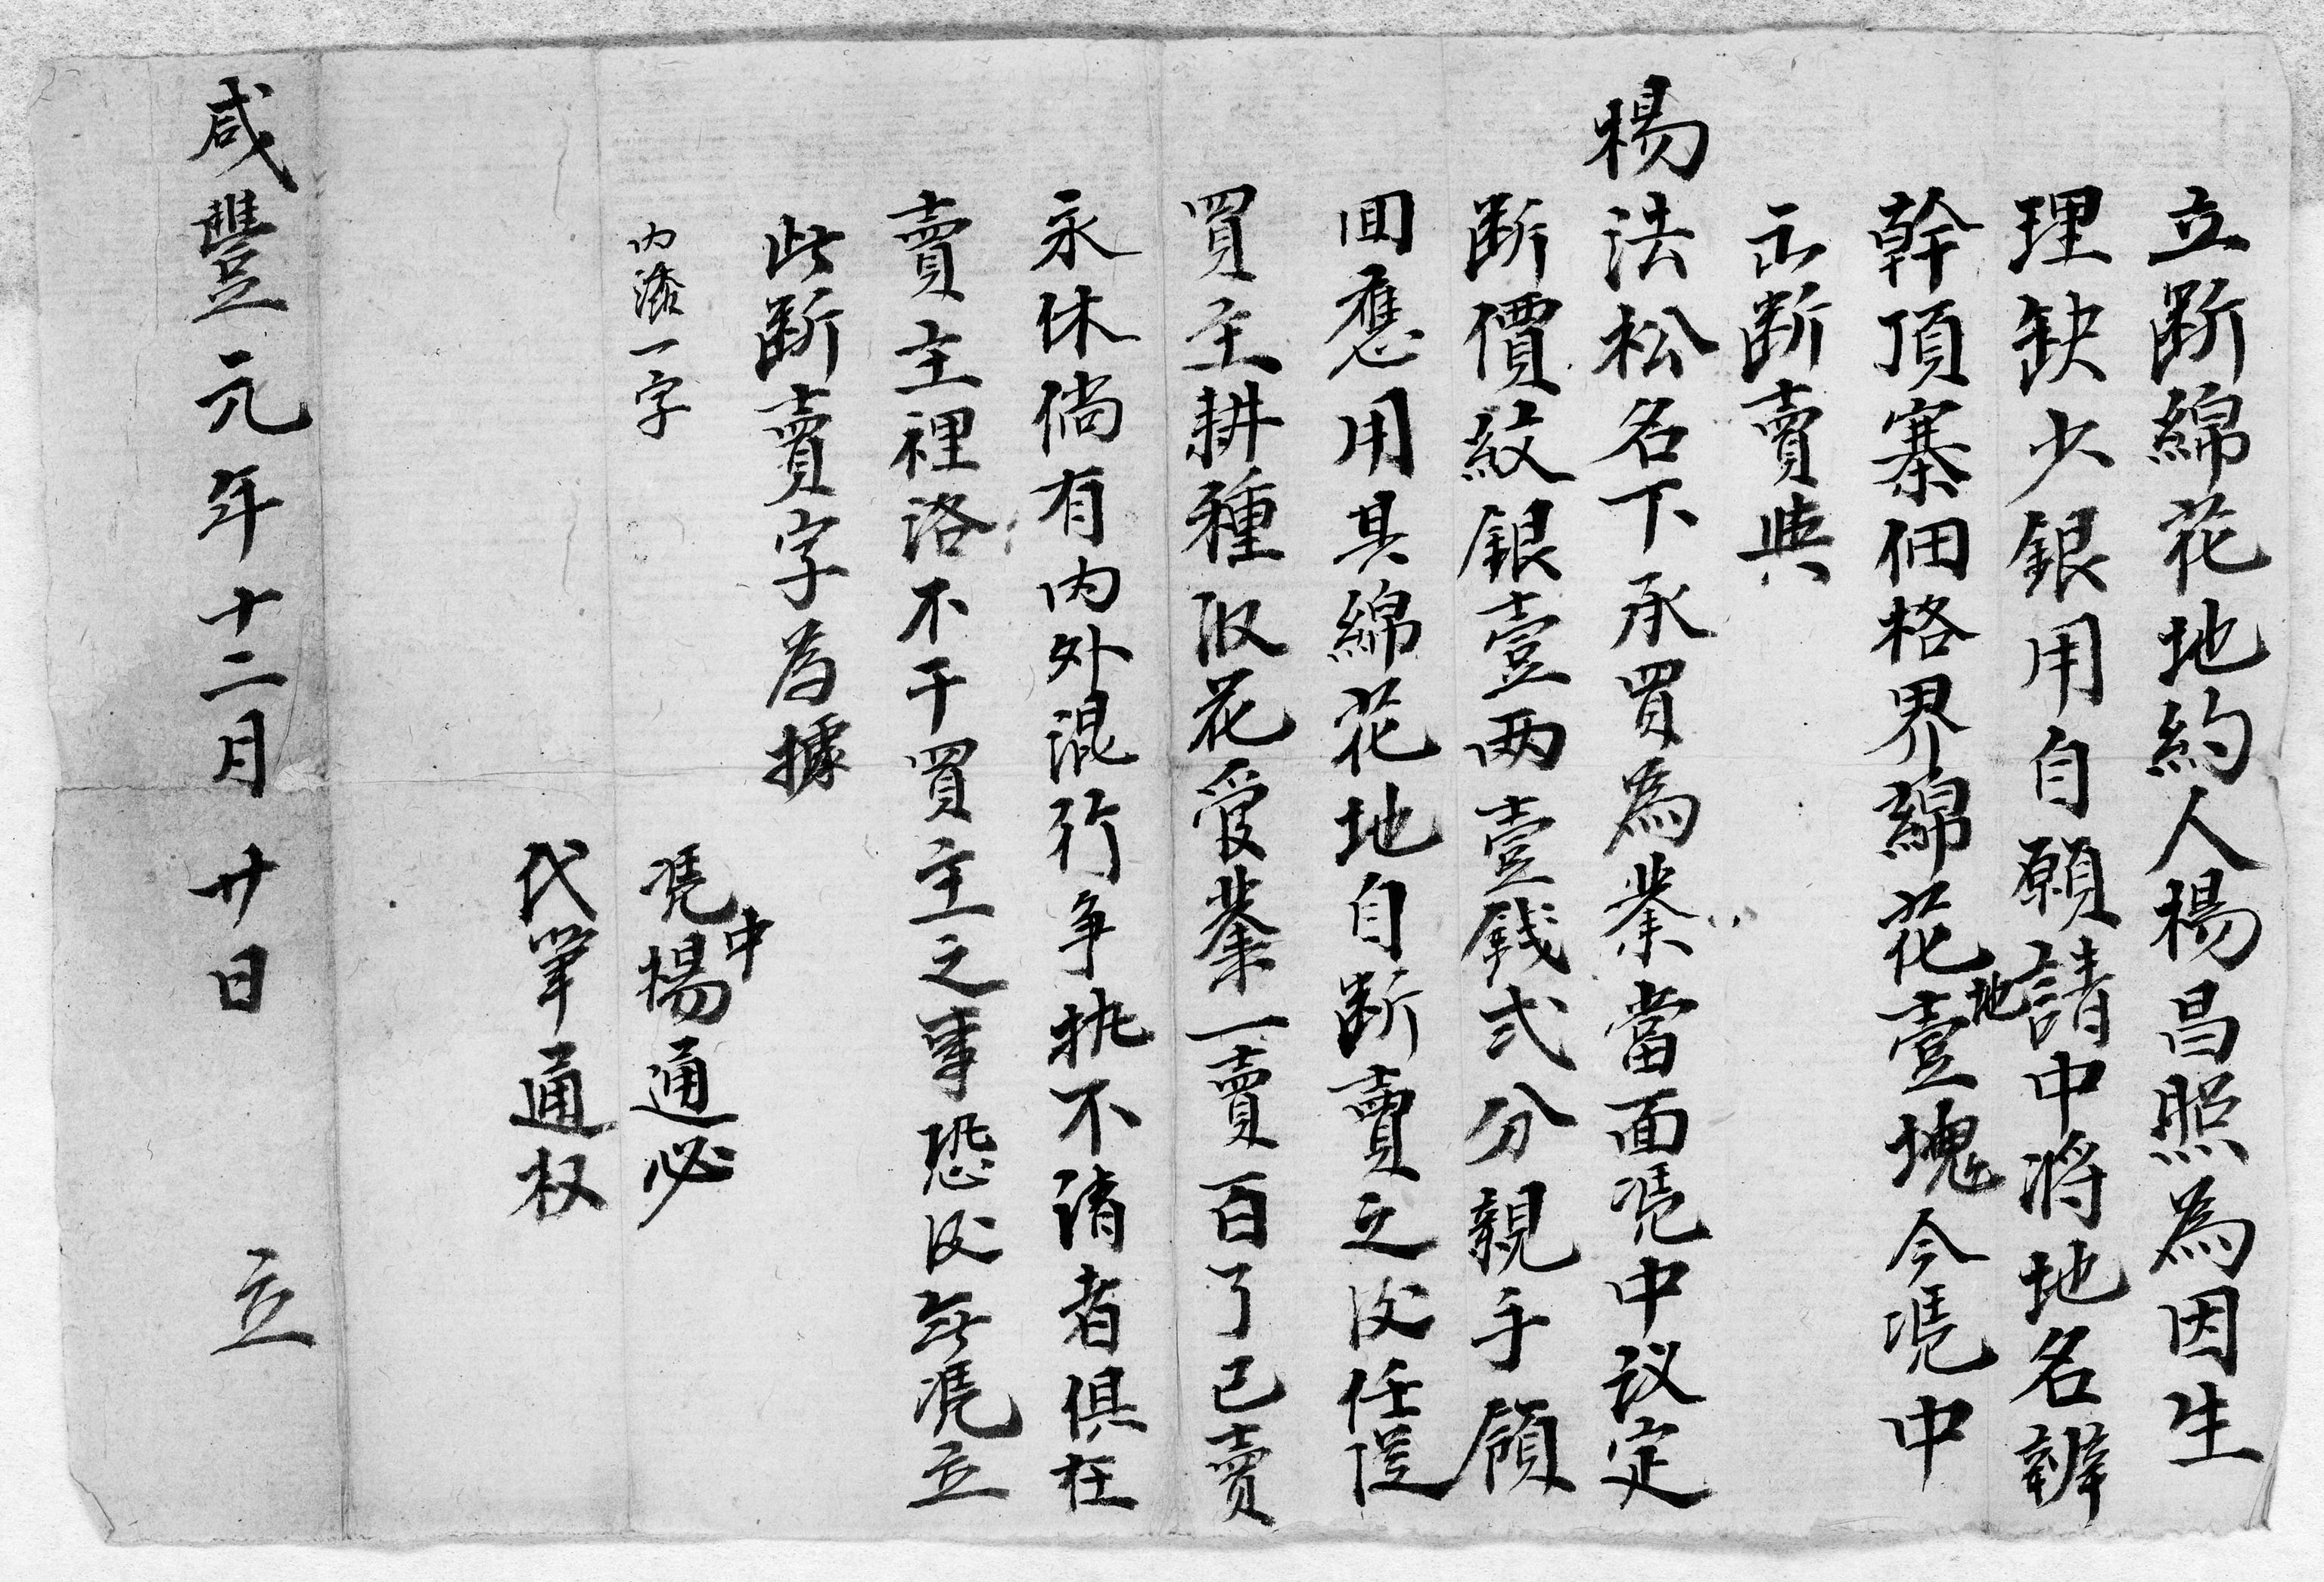 立断綿花地約人楊昌照為因生
理缺少銀用自願請中將地名辦
幹頂寨佃格界綿花地壹塊今凭中
出断賣與
楊法松名下承買為業當面凭中议定
断價紋銀壹两壹錢弍分親手領
回應用其綿花地自断賣之後任從
買主耕種收花管業一賣百了已賣
永休倘有内外混行争执不清者俱在
賣主裡洛不干買主之事恐後無凭立
此断賣字為據
内添一字
凭中楊通必
代筆通权
咸豐元年十二月廿日 立